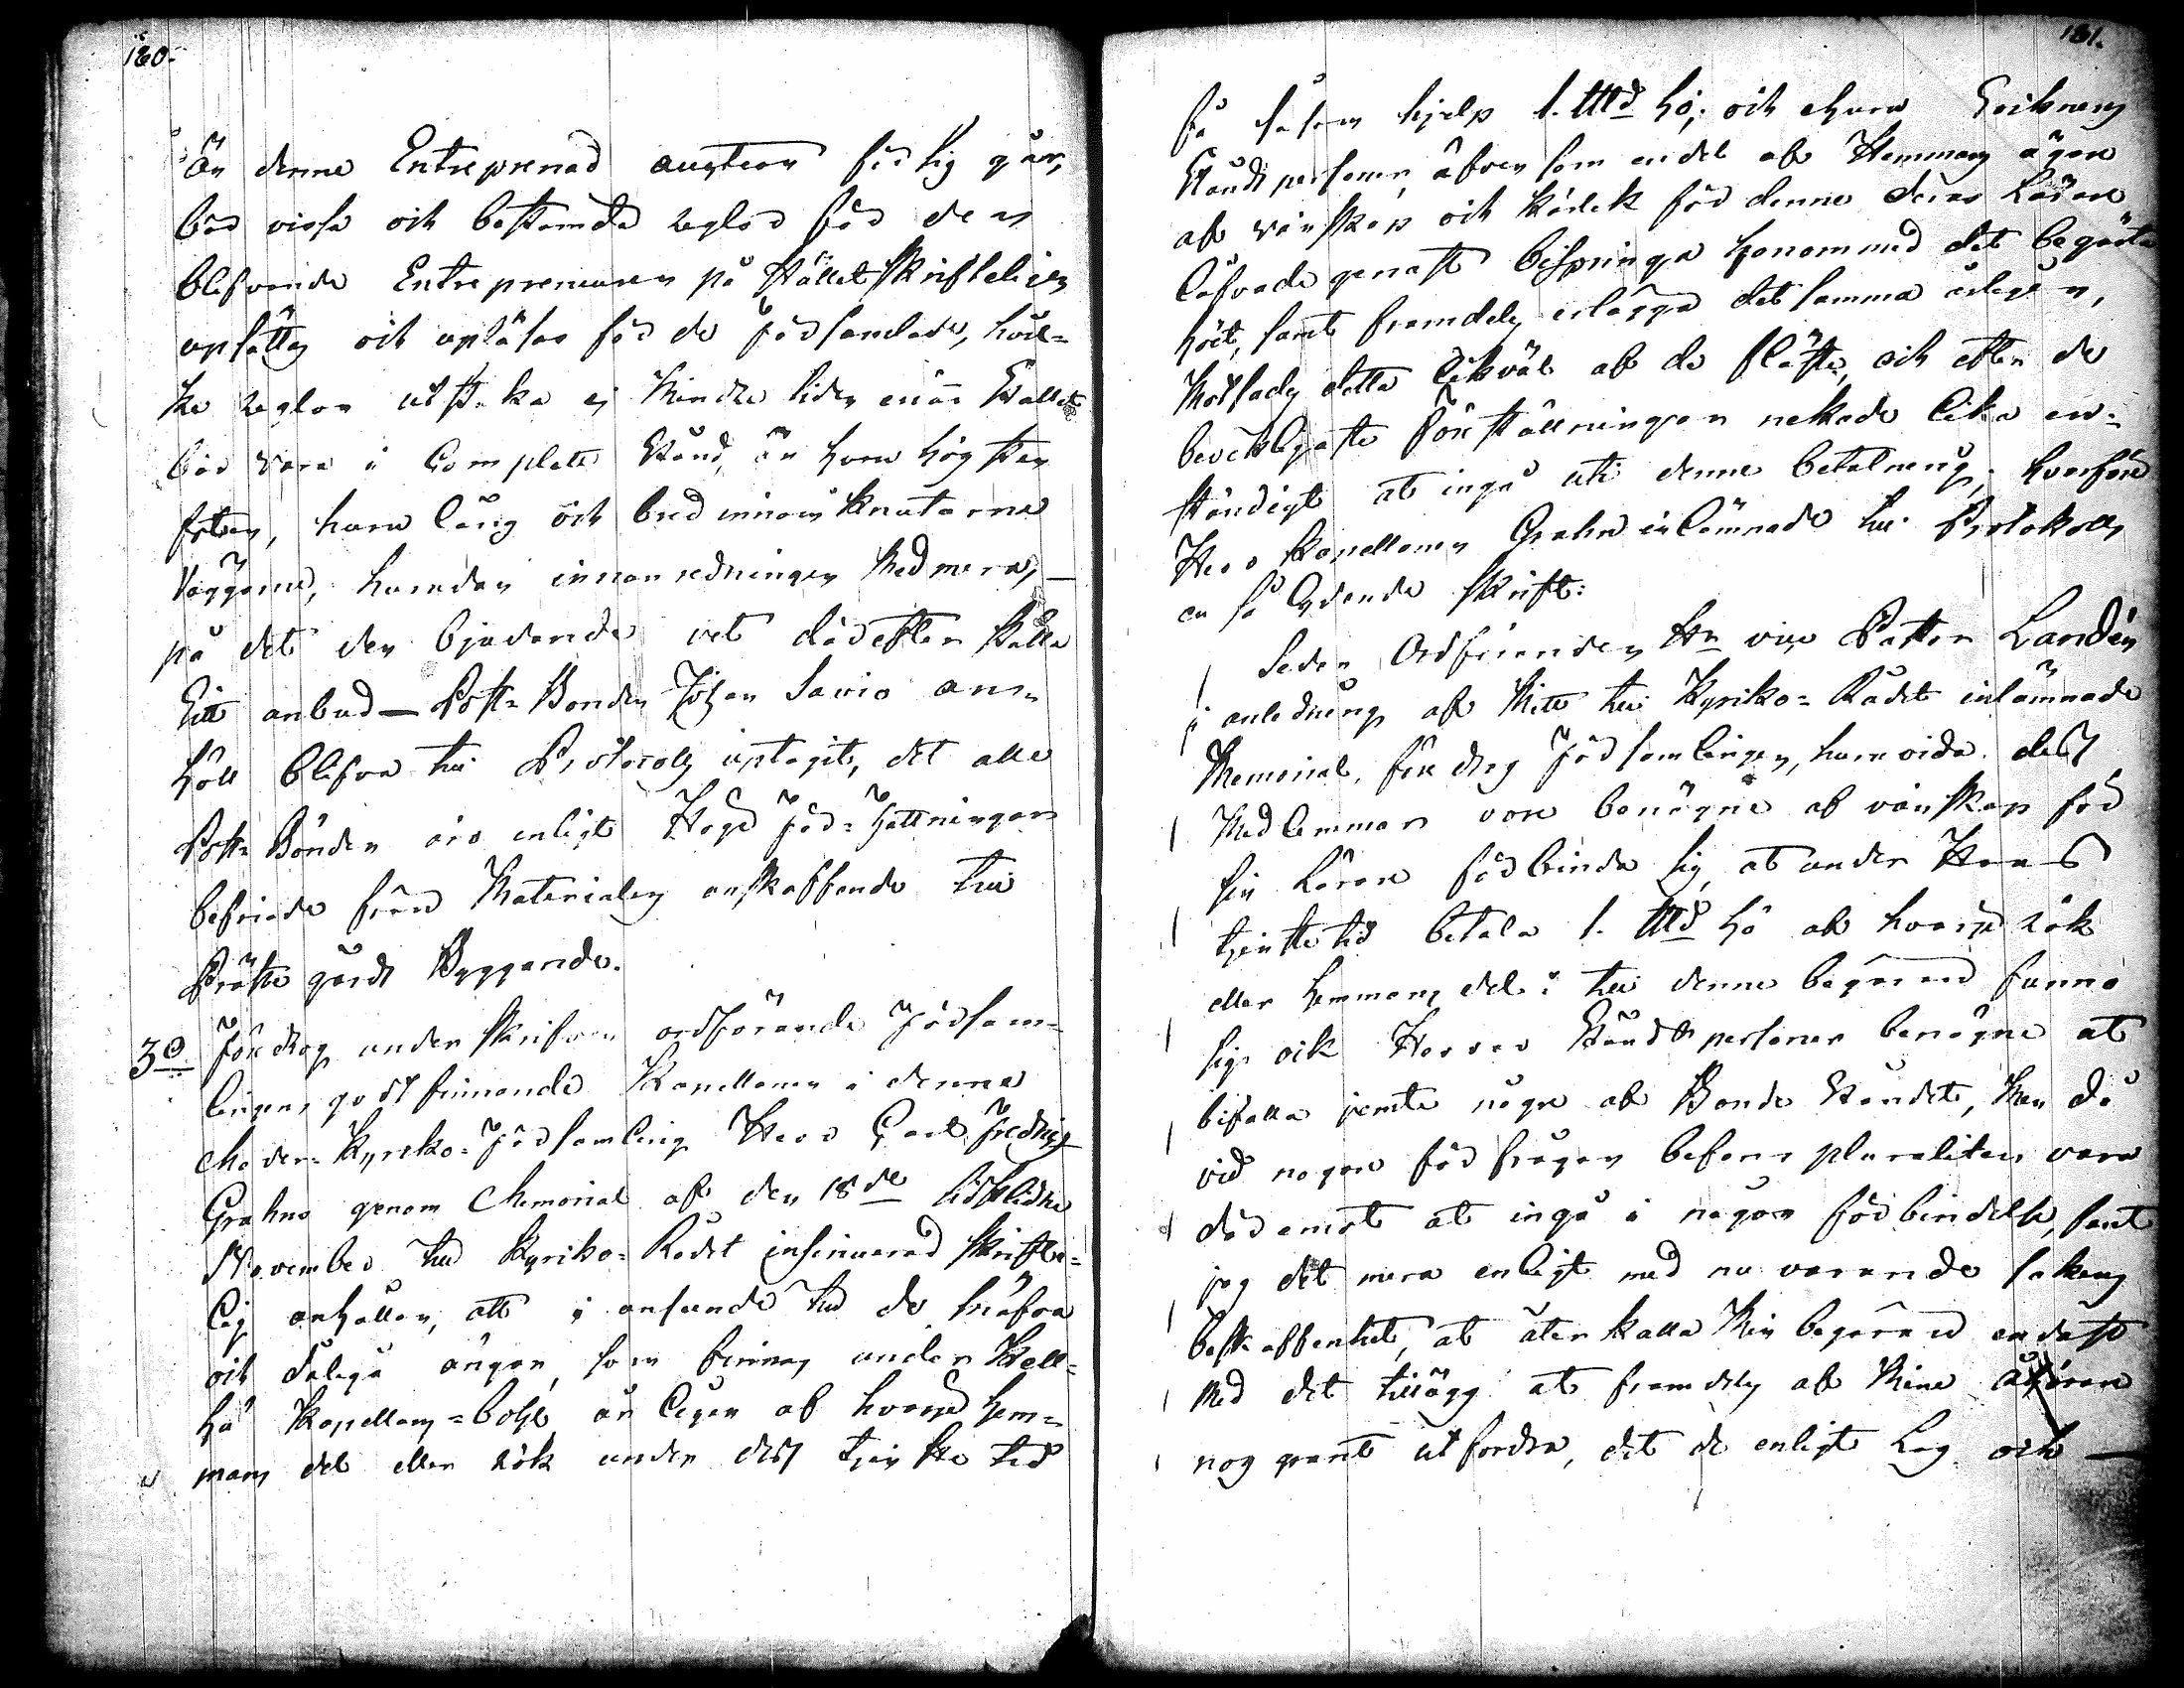 180.
än denne Entreprenad auction för sig går,
bör vissa och bestämda reglor för den
blifvande Entrepreneuren på stället skrifteligen
upsättas och upläsas för de Församlade, hvil-
ke reglor utstaka ej mindre tiden enär Stället
bör vara i Complett stånd, än huru hög sten
foten, huru lång och bred innom knutarne
väggarne, hurudan innanredningen med mera, —
på det den bjudande vet därefter ställa
Sitt anbud — Post-Bonden Johan Savio an-
höll blifva till Protocolls uptagit, det alle
Post-Bönder äro enligt Höga Författningar
befriade från Materialers anskaffande till
Prästegårds Byggande.
3o Föredrog underskrifven ordförande Församlingens
godtfinnande Kapellanen i denna
Moder-Kyrko-Församling Herr Carl Fredric
Grahns genom Memorial af den 18de sistlidne
November till Kyrko-Rådet insinuerad skrifte-
lig anhållan, att i anseende till de
och dåliga ängar, som finnas under
Kapellans-bohl, årligen af hvarje hem-
mans del eller rök under dess tjenste tid
181.
få såsom hjelp 1. ℔ hö; och ehuru
Ståndspersoner, äfven som endel af Hemmans ägare
af vänskap och kärlek för denne deras Lärare
låfvade genast bispringa honom med det begärta
höet, samt framdeles erlägga det samma årligen,
motsades detta likväl af de fläste, och efter de
beveklgaste föreställningar nekade lika en-
ständigt at ingå uti denne betalning; hvarföre
Herr Kapellanen Grahn inlämnade till Protokolls
en så lydande skrift:
Sedan Ordföranden Hr vice Pastor Landén
i anledning af mitt till Kyrko-Rådet inlämnade
Memorial, föredrog Församlingen, huruvida dess
Medlemmar vore benägne af vänskap för
sin Lärare förbinda sig, at under Hans
tjenstetid betala 1. ℔ hö af hvarje rök
eller hemmans del: till denne begäran funno
sig ock Herrar Ståndspersoner benägne at
bifalla jemte någre af Bonde Ståndet, Men då
vid nogare förfrågan befans pluraliteten vara
däremot at ingå i någon förbindelse, fant
jag det mera enligt med nu varande sakens
beskaffenhet, at återkalla min begäran endast
med det tillägg at framdeles af mine Åhörare
nog grant utfordra, det de enligt Lag och —